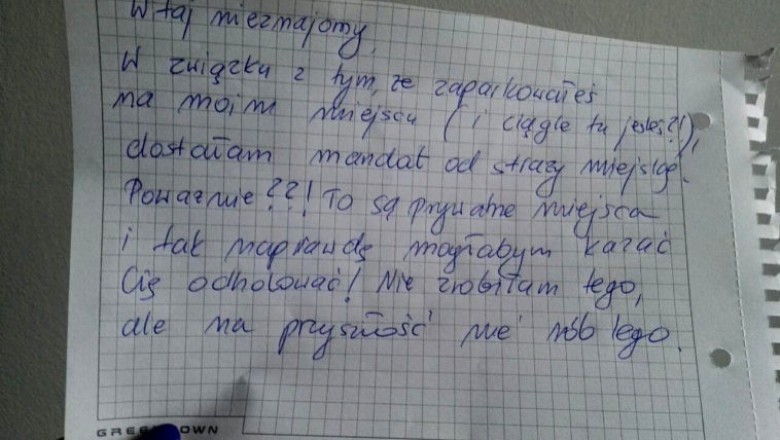 Witaj nieznajomy,
W związku z tym, że zaparkowałeś
na moim miejscu (i ciągle tu jesteś?!),
dostałam mandat od straży miejskiej.
Poważnie??! To są prywatne miejsca
i tak naprawdę mogłabym kazać
Cię odholować! Nie zrobiłam tego,
ale na przyszłość nie rób tego.